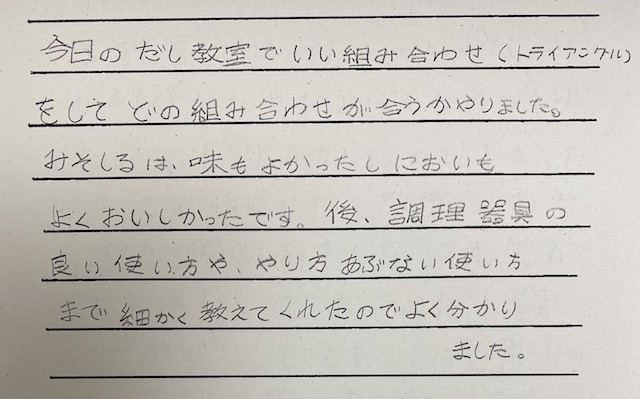 今日のだし教室でいい組み合わせ(トライアングル)
をしてどの組み合わせが合うかやりました。
みそしるは、味もよかったしにおいも
よくおいしかったです。後、調理器具の
良い使い方や、やり方あぶない使い方
まで細かく教えてくれたのでよく分かり
ました。